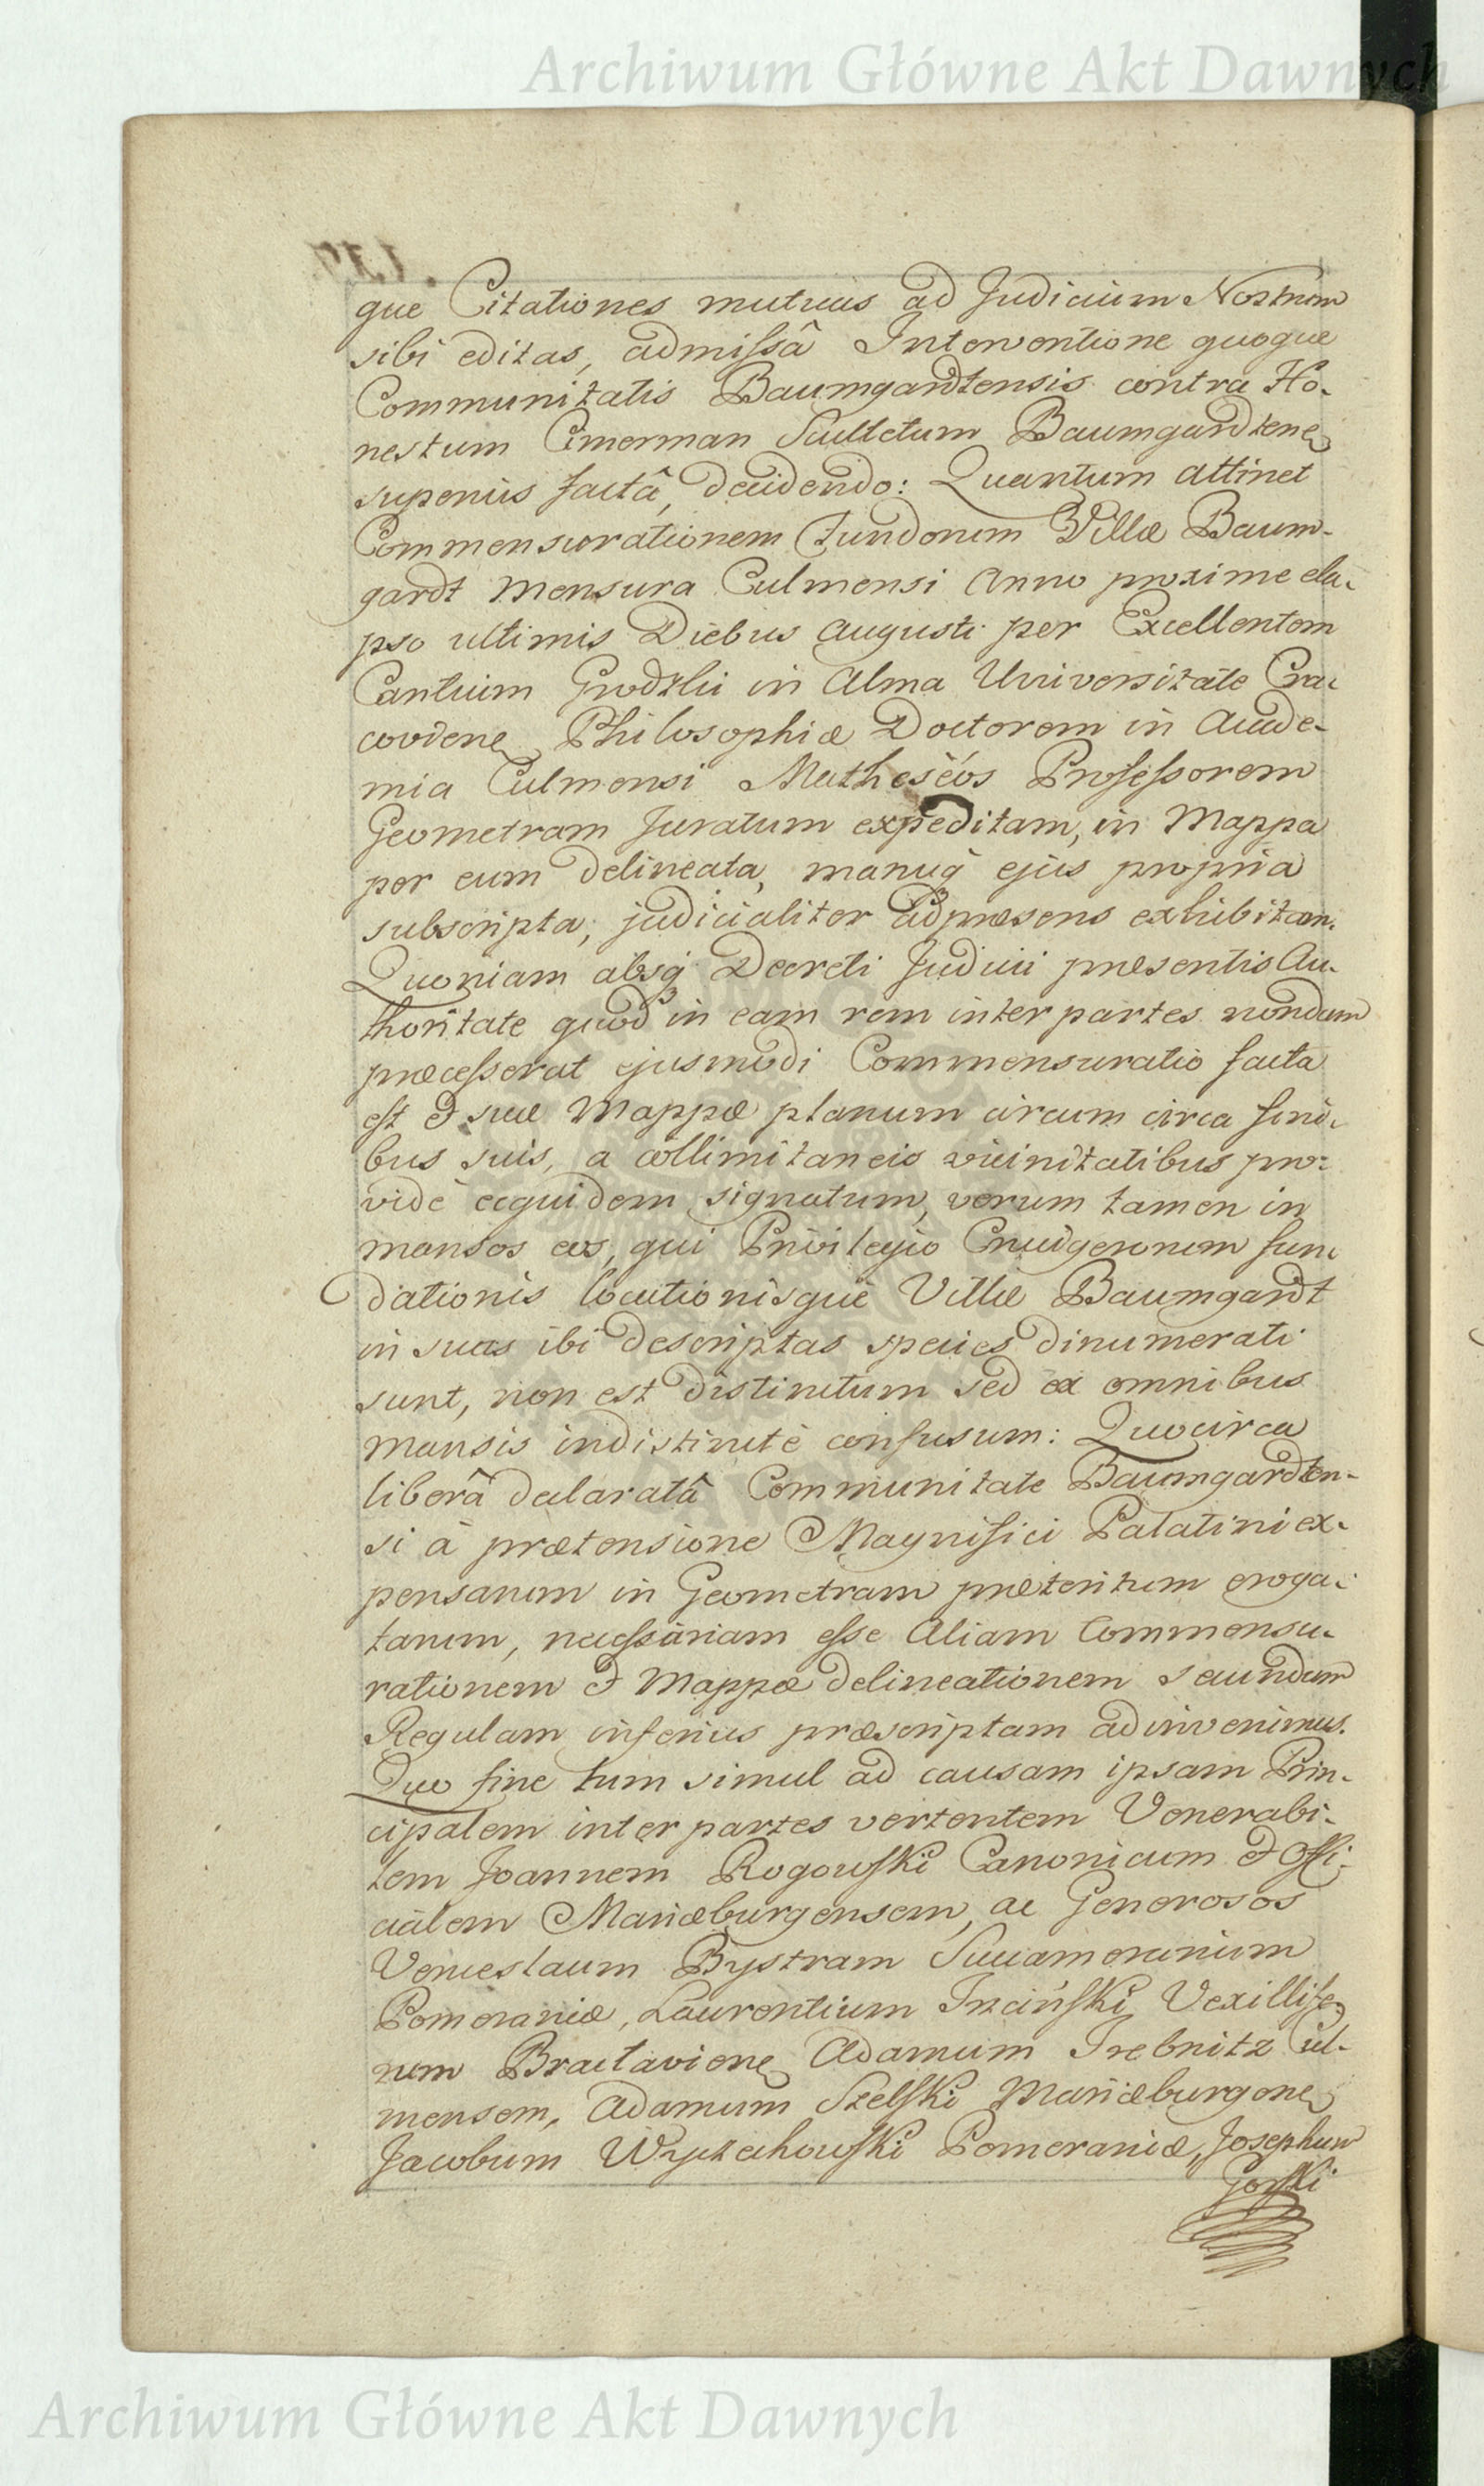 Archiwum Główne Akt Dawnych
que Citationes mutuas ad Judicium Nostrum
sibi editas, admissâ Interventione quoque
Communitatis Baumgardtensis contra Ho-
nestum Cimerman Scultetum Baumgardtens
superius factâ, decidendo: Quantum attinet
Commensurationem fundorum Villæ Baum-
gardt mensura Culmensi Anno proxime ela-
pso ultimis Diebus Augusti per Excellentem
Cantium Grodzki in Alma Universitate Cra-
coviens Philosophiæ Doctorem in Acade-
mia Culmensi Matheseos Professorem
Geometram Juratum expeditam, in Mappa
per eum delineata, manuq ejus propria
subscripta, judicialiter adpræsens exhibitam.
Quoniam absq Decreti Judicii præsentis Au-
thoritate quod in eam rem inter partes nondum
præcesserat ejusmodi Commensuratio facta
est & suæ Mappæ planum circum circa fini-
bus suis, a collimitaneis vicinitatibus pro-
vidè eequidem signatum, verum tamen in
mansos eos, qui Privilegio Crucigerorum fun-
dationis locationisque Villæ Baumgardt
in suas ibi descriptas species dinumerati
sunt, non est distinctum sed ex omnibus
mansis indistinctè confusum: Quocirca
liberâ declaratâ Communitate Baumgardten-
si à prætensione Magnifici Palatini ex-
pensarum in Geometram præteritum eroga-
tarum, necessariam esse aliam Commensu-
rationem & Mappæ delineationem secundum
Regulam inferius præscriptam adinvenimus.
Quo fine tum simul ad causam ipsam Prin-
cipalem inter partes vertentem Venerabi-
lem Joannem Rogowski Canonicum & Offi-
cialem Mariæburgensem, ac Generosos
Venceslaum Bystram Succamerarium
Pomeraniæ, Laurentium Trzcinski Vexillife-
rum Braclaviens Adamum Trebnitz Cul-
mensem, Adamum Szelski Mariæburgens
Jacobum Wyczechowski Pomeraniæ, Josephum
Gorski
Archiwum Główne Akt Dawnych